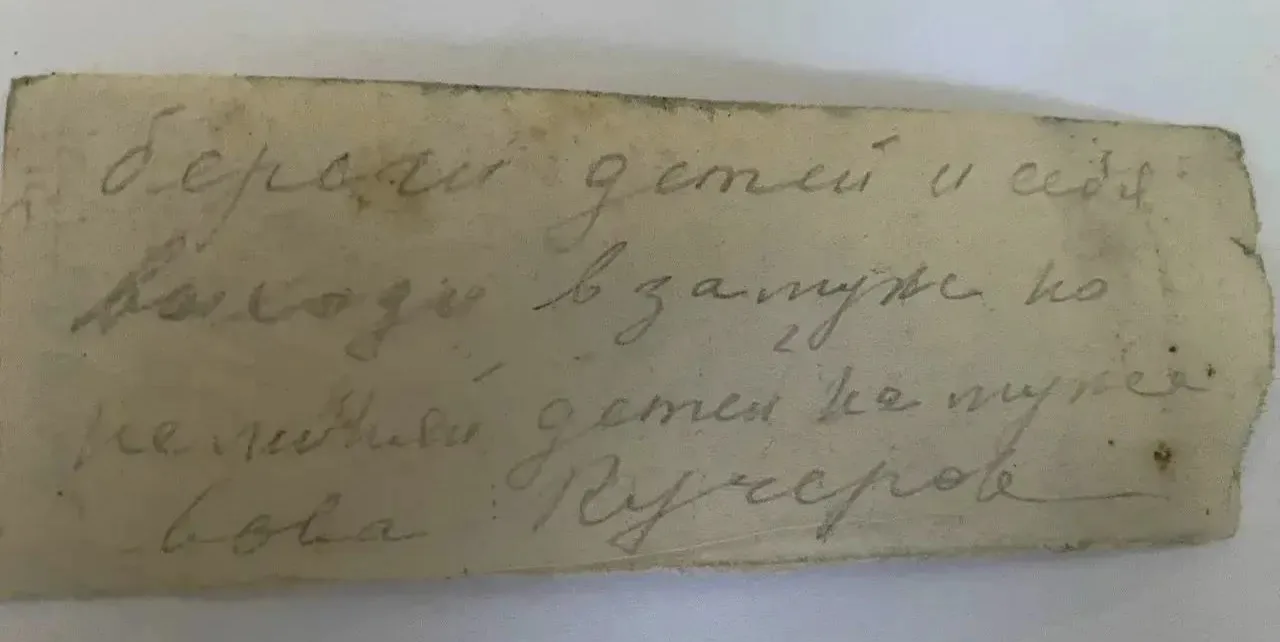 береги детей и себя
выходи взамуж но
не меняй детей на мужа
вова Кучеров